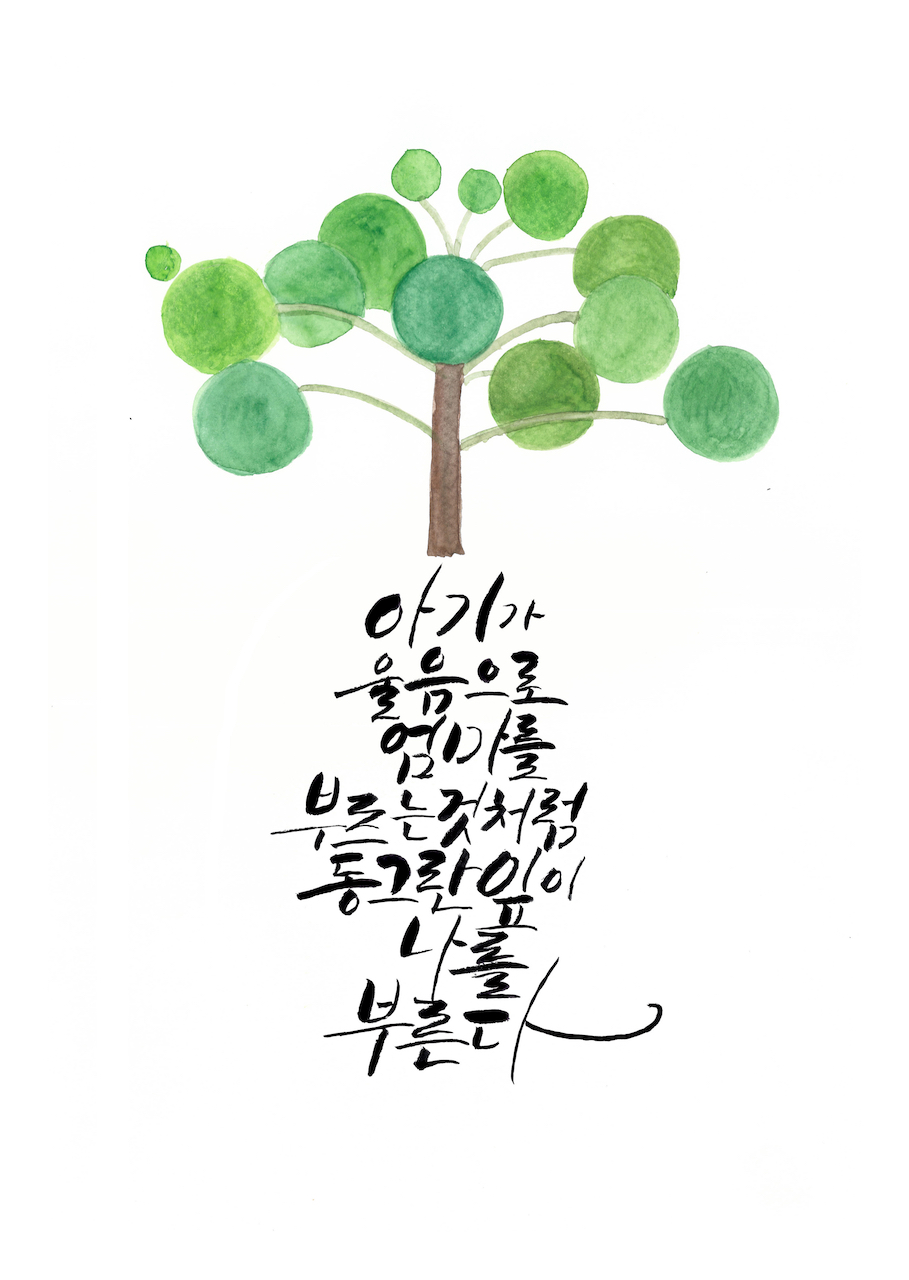 아기가
울음으로
엄마를
부르는것처럼
동그란 잎이
나를
부른다